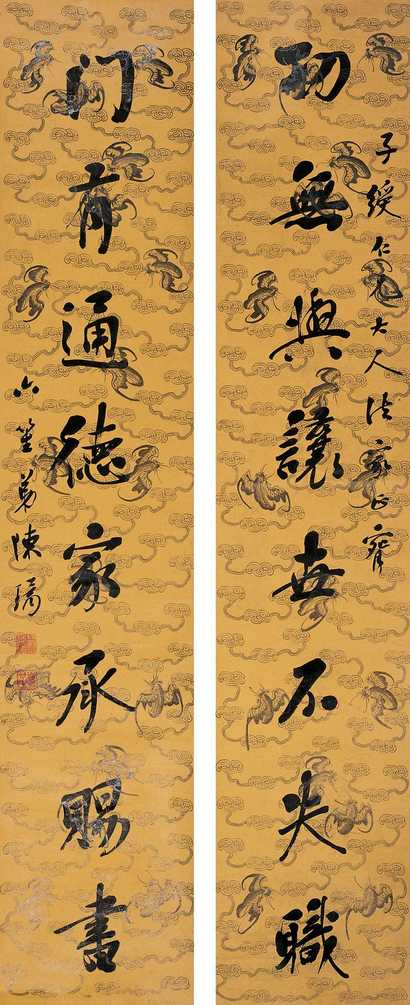 子綬仁兄大人法家正
功無與讓世不失職
门有通德家承賜書
六笙弟陳璚